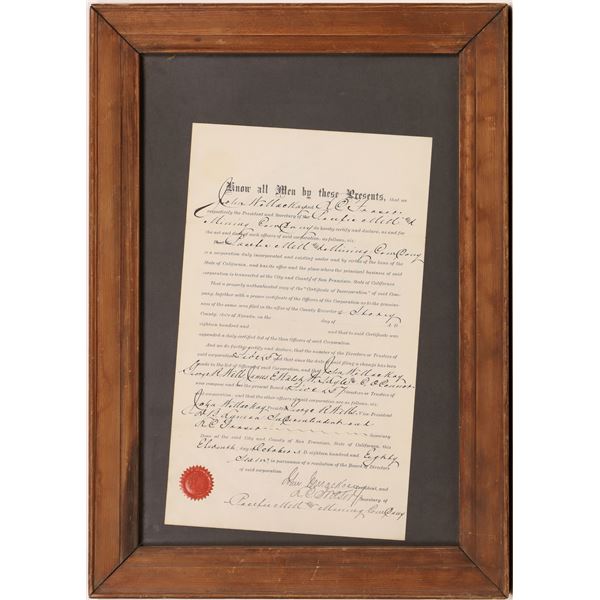 Know all Men by these Presents, that we
John W Mackay and R. C. Fraser
respectively the President and Secretary of the Pacific Mill &
Mining Company do hereby certify and declare, as and for
the act and deed of such officers of said corporation, as follows, viz:
Pacific Mill & Mining Company
is a corporation duly incorporated and existing under and by virtue of the laws of the
State of California, and has its office and the place where the principal business of said
corporation is transacted at the City and County of San Francisco, State of California
That a properly authenticated copy of the "Certificate of Incorporation" of said Com-
pany, together with a proper certificate of the Officers of the Corporation as to the genuine-
ness of the same were filed in the office of the County Recorder of Storey
County, State of Nevada, on the day of A. D.
eighteen hundred and and that to said Certificate was
appended a duly certified list of the then Officers of said Corporation.
And we do further certify and declare, that the number of the Directors or Trustees of
said corporation is five (5) and that since the date of said filing a change has been
made in the list of officers of said Corporation, and that John W Mackay
George R Wells, James E Walsh, C. O'Connor
now compose and are the present Board of five (5) Directors or Trustees of
said corporation, and that the other officers of said corporation are as follows, viz:
John W Mackay President George R Wells Vice President
D B Lyman Superintendent and
R. C. Fraser Secretary
Done at the said City and County of San Francisco, State of California, this
Eleventh day of October A. D. eighteen hundred and Eighty
in pursuance of a resolution of the Board of Directors
of said corporation.
President, and
Secretary, of
Pacific Mill & Mining Company